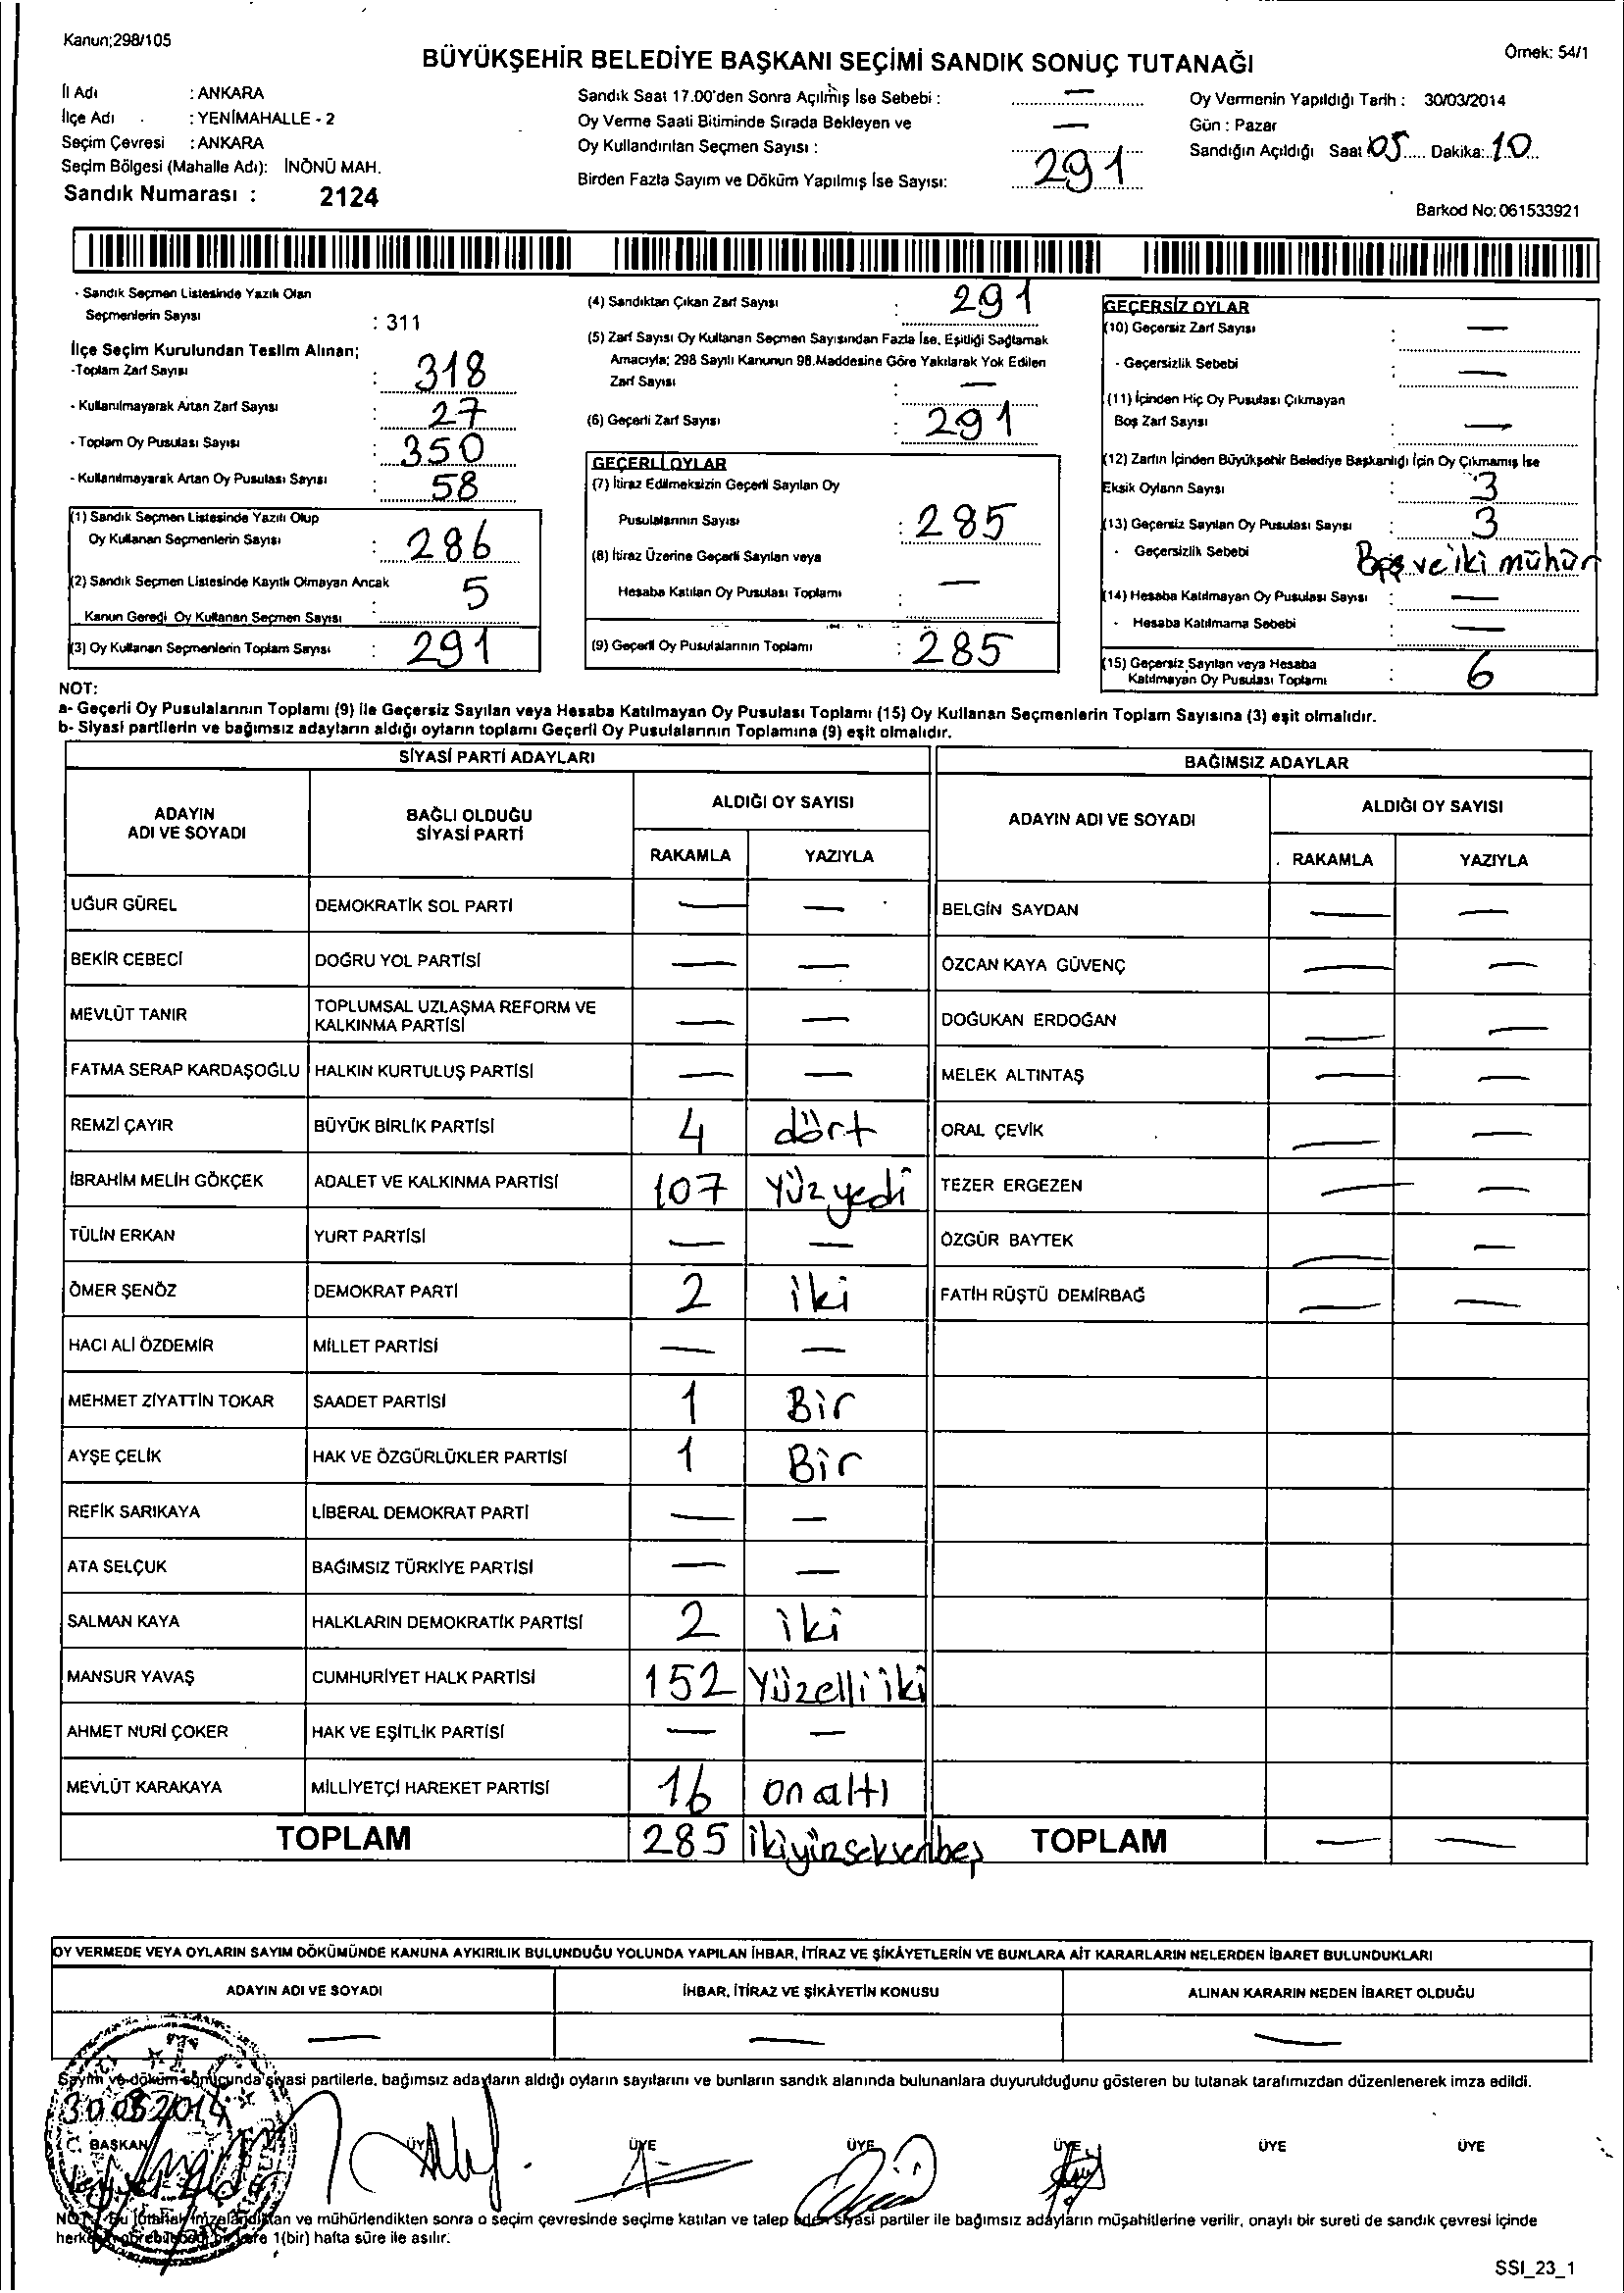 Kanun;298/105
BÜYÜKŞEHİR BELEDİYE BAŞKANI SEÇİMİ SANDIK SONUÇ TUTANAĞI
Örnek: 54/1
İl Adı : ANKARA
İlçe Adı : YENİMAHALLE - 2
Seçim Çevresi : ANKARA
Seçim Bölgesi (Mahalle Adı): İNÖNÜ MAH.
Sandık Numarası : 2124
Sandık Saat 17.00'den Sonra Açılmış İse Sebebi : —
Oy Verme Saati Bitiminde Sırada Bekleyen ve
Oy Kullandırılan Seçmen Sayısı : —
Birden Fazla Sayım ve Döküm Yapılmış İse Sayısı: 291
Oy Vermenin Yapıldığı Tarih : 30/03/2014
Gün : Pazar
Sandığın Açıldığı Saat 05 Dakika: 10
Barkod No: 061533921
- Sandık Seçmen Listesinde Yazılı Olan
Seçmenlerin Sayısı : 311
İlçe Seçim Kurulundan Teslim Alınan;
-Toplam Zarf Sayısı : 318
- Kullanılmayarak Artan Zarf Sayısı : 27
- Toplam Oy Pusulası Sayısı : 350
- Kullanılmayarak Artan Oy Pusulası Sayısı : 58
(1) Sandık Seçmen Listesinde Yazılı Olup
Oy Kullanan Seçmenlerin Sayısı : 286
(2) Sandık Seçmen Listesinde Kayıtlı Olmayan Ancak
Kanun Gereği Oy Kullanan Seçmen Sayısı : 5
(3) Oy Kullanan Seçmenlerin Toplam Sayısı : 291
(4) Sandıktan Çıkan Zarf Sayısı : 291
(5) Zarf Sayısı Oy Kullanan Seçmen Sayısından Fazla İse, Eşitliği Sağlamak
Amacıyla; 298 Sayılı Kanunun 98.Maddesine Göre Yakılarak Yok Edilen
Zarf Sayısı : —
(6) Geçerli Zarf Sayısı : 291
GEÇERLİ OYLAR
(7) İtiraz Edilmeksizin Geçerli Sayılan Oy
Pusulalarının Sayısı : 285
(8) İtiraz Üzerine Geçerli Sayılan veya
Hesaba Katılan Oy Pusulası Toplamı : —
(9) Geçerli Oy Pusulalarının Toplamı : 285
GEÇERSİZ OYLAR
(10) Geçersiz Zarf Sayısı : —
- Geçersizlik Sebebi : —
(11) İçinden Hiç Oy Pusulası Çıkmayan
Boş Zarf Sayısı : —
(12) Zarfın İçinden Büyükşehir Belediye Başkanlığı İçin Oy Çıkmamış İse
Eksik Oyların Sayısı : 3
(13) Geçersiz Sayılan Oy Pusulası Sayısı : 3
- Geçersizlik Sebebi Boş ve iki mühür
(14) Hesaba Katılmayan Oy Pusulası Sayısı : —
- Hesaba Katılmama Sebebi : —
(15) Geçersiz Sayılan veya Hesaba
Katılmayan Oy Pusulası Toplamı : 6
NOT:
a- Geçerli Oy Pusulalarının Toplamı (9) ile Geçersiz Sayılan veya Hesaba Katılmayan Oy Pusulası Toplamı (15) Oy Kullanan Seçmenlerin Toplam Sayısına (3) eşit olmalıdır.
b- Siyasi partilerin ve bağımsız adayların aldığı oyların toplamı Geçerli Oy Pusulalarının Toplamına (9) eşit olmalıdır.
SİYASİ PARTİ ADAYLARI
ADAYIN ADI VE SOYADI BAĞLI OLDUĞU SİYASİ PARTİ ALDIĞI OY SAYISI
RAKAMLA YAZIYLA
UĞUR GÜREL DEMOKRATİK SOL PARTİ — —
BEKİR CEBECİ DOĞRU YOL PARTİSİ — —
MEVLÜT TANIR TOPLUMSAL UZLAŞMA REFORM VE KALKINMA PARTİSİ — —
FATMA SERAP KARDAŞOĞLU HALKIN KURTULUŞ PARTİSİ — —
REMZİ ÇAYIR BÜYÜK BİRLİK PARTİSİ 4 dört
İBRAHİM MELİH GÖKÇEK ADALET VE KALKINMA PARTİSİ 107 Yüz yedi
TÜLİN ERKAN YURT PARTİSİ — —
ÖMER ŞENÖZ DEMOKRAT PARTİ 2 iki
HACI ALİ ÖZDEMİR MİLLET PARTİSİ — —
MEHMET ZİYATTİN TOKAR SAADET PARTİSİ 1 Bir
AYŞE ÇELİK HAK VE ÖZGÜRLÜKLER PARTİSİ 1 Bir
REFİK SARIKAYA LİBERAL DEMOKRAT PARTİ — —
ATA SELÇUK BAĞIMSIZ TÜRKİYE PARTİSİ — —
SALMAN KAYA HALKLARIN DEMOKRATİK PARTİSİ 2 iki
MANSUR YAVAŞ CUMHURİYET HALK PARTİSİ 152 Yüzelli iki
AHMET NURİ ÇOKER HAK VE EŞİTLİK PARTİSİ — —
MEVLÜT KARAKAYA MİLLİYETÇİ HAREKET PARTİSİ 16 on altı
TOPLAM 285 İkiyüzseksenbeş
BAĞIMSIZ ADAYLAR
ADAYIN ADI VE SOYADI ALDIĞI OY SAYISI
RAKAMLA YAZIYLA
BELGİN SAYDAN — —
ÖZCAN KAYA GÜVENÇ — —
DOĞUKAN ERDOĞAN — —
MELEK ALTINTAŞ — —
ORAL ÇEVİK — —
TEZER ERGEZEN — —
ÖZGÜR BAYTEK — —
FATİH RÜŞTÜ DEMİRBAĞ — —
TOPLAM — —
OY VERMEDE VEYA OYLARIN SAYIM DÖKÜMÜNDE KANUNA AYKIRILIK BULUNDUĞU YOLUNDA YAPILAN İHBAR, İTİRAZ VE ŞİKÂYETLERİN VE BUNLARA AİT KARARLARIN NELERDEN İBARET BULUNDUKLARI
ADAYIN ADI VE SOYADI İHBAR, İTİRAZ VE ŞİKÂYETİN KONUSU ALINAN KARARIN NEDEN İBARET OLDUĞU
— — —
Sayım ve döküm sonucunda siyasi partilerle, bağımsız adayların aldığı oyların sayılarını ve bunların sandık alanında bulunanlara duyurulduğunu gösteren bu tutanak tarafımızdan düzenlenerek imza edildi.
30.03.2014
BAŞKAN ÜYE ÜYE ÜYE ÜYE ÜYE ÜYE
NOT: Bu tutanak imzalandıktan ve mühürlendikten sonra o seçim çevresinde seçime katılan ve talep eden siyasi partiler ile bağımsız adayların müşahitlerine verilir, onaylı bir sureti de sandık çevresi içinde
1(bir) hafta süre ile asılır.
SSI_23_1